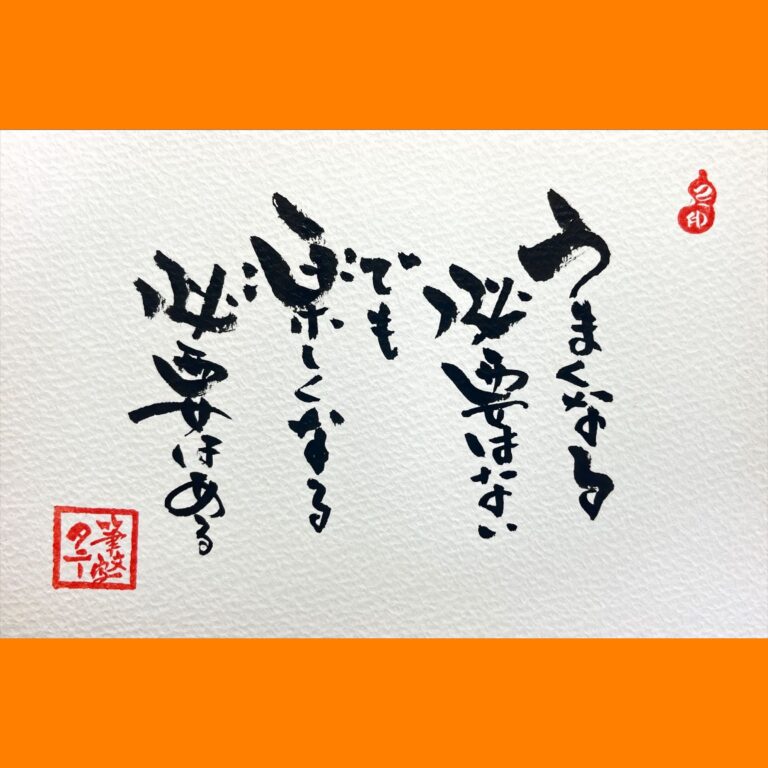 うまくなる
必要はない
でも
楽しくなる
必要はある